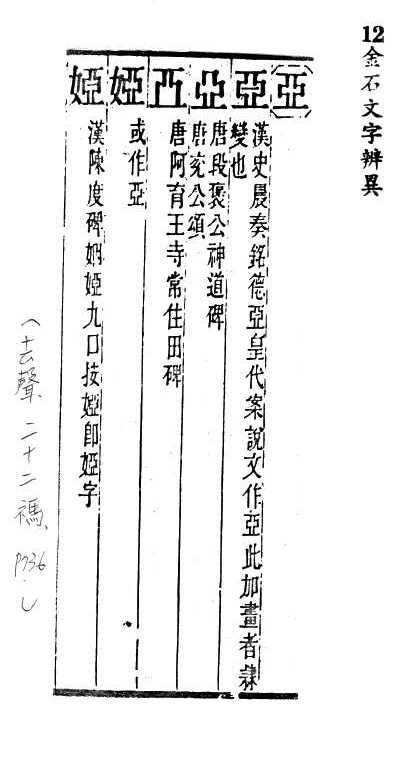 12金石文字辨異
亞
亞 漢史晨奏銘德亞皇代案說文作亞此加畫者隸
變也
亞 唐段褒公神道碑
唐兖公頌
唐阿育王寺常住田碑
婭 或作亞
婭 漢陳度碑姻婭九口按婭即婭字
(去聲 二十二禡、P736